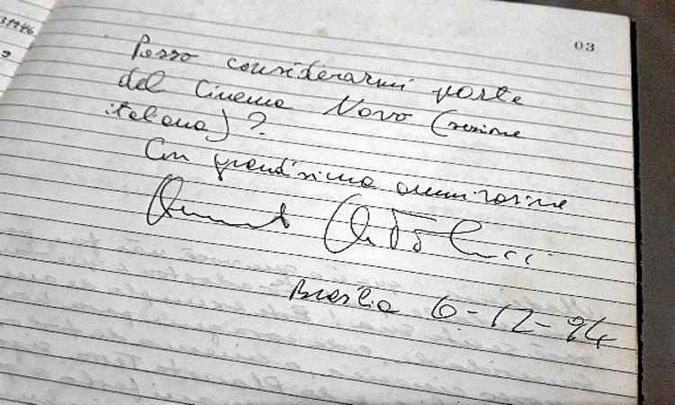 03
Posso considerarmi parte
del Cinema Novo (sezione
italiana) ?
Con grandissima ammirazione
Brasilia 6-12-94